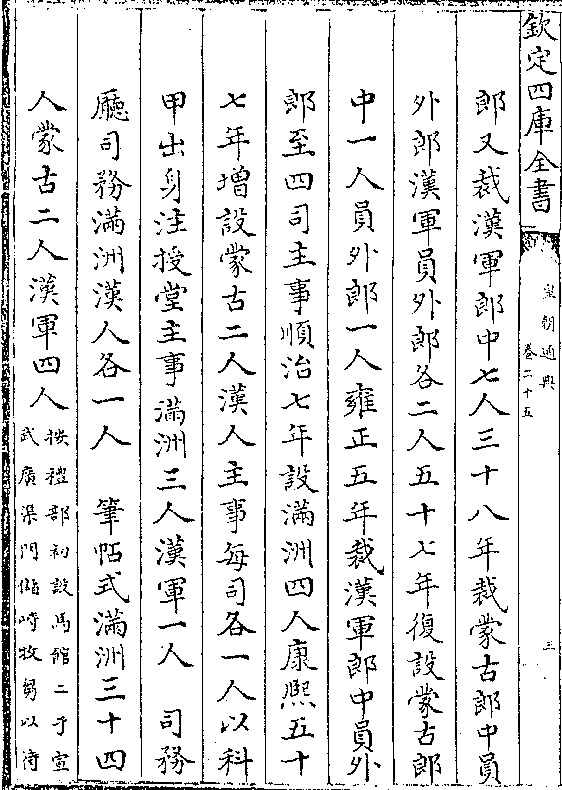 欽定四庫全書
皇朝通典
卷二十五
三
郎又裁漢軍郎中七人三十八年裁蒙古郎中員
外郎漢軍員外郎各二人五十七年復設蒙古郎
中一人員外郎一人雍正五年裁漢軍郎中員外
郎至四司主事順治七年設滿洲四人康熙五十
七年增設蒙古二人漢人主事每司各一人以科
甲出身注授堂主事滿洲三人漢軍一人　司務
廳司務滿洲漢人各一人　筆帖式滿洲三十四
人蒙古二人漢軍四人
按禮部初設馬館二于宣
武廣渠門儲峙芻以待